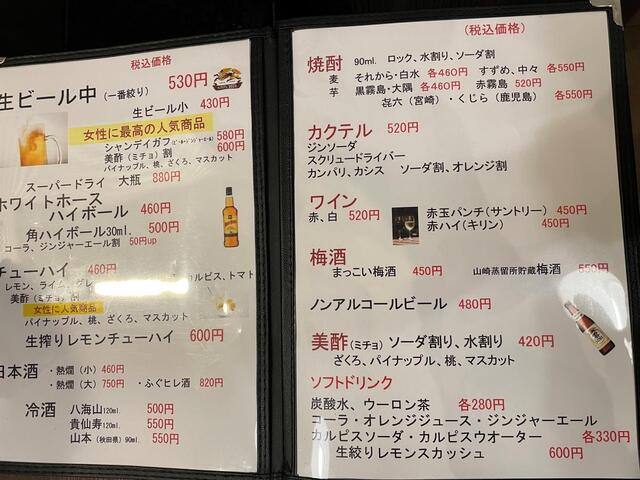 税込価格
生ビール中 (一番絞り) 530円
生ビール小 430円
女性に最高の人気商品
シャンディガフ(ビール・ジンジャーエール) 580円
美酢(ミチョ)割 600円
パイナップル、桃、ざくろ、マスカット
スーパードライ 大瓶 880円
ホワイトホース
ハイボール 460円
角ハイボール30ml. 500円
コーラ、ジンジャーエール割 50円up
チューハイ 460円
レモン、ライム、グレ カルピス、トマト
美酢(ミチョ)割
女性に人気商品
パイナップル、桃、ざくろ、マスカット
生搾りレモンチューハイ 600円
日本酒 ・熱燗(小) 460円
・熱燗(大) 750円 ・ふぐヒレ酒 820円
冷酒 八海山120ml. 500円
貴仙寿120ml. 550円
山本(秋田県)90ml. 550円
(税込価格)
焼酎 90ml. ロック、水割り、ソーダ割
麦 それから・白水 各460円 すずめ、中々 各550円
芋 黒霧島・大隅 各460円 赤霧島 520円
㐂六(宮崎)・くじら(鹿児島) 各550円
カクテル 520円
ジンソーダ
スクリュードライバー
カンパリ、カシス ソーダ割、オレンジ割
ワイン
赤、白 520円 赤玉パンチ(サントリー) 450円
赤ハイ(キリン) 450円
梅酒
まっこい梅酒 450円 山崎蒸留所貯蔵梅酒 550円
ノンアルコールビール 480円
美酢(ミチョ)ソーダ割り、水割り 420円
ざくろ、パイナップル、桃、マスカット
ソフトドリンク
炭酸水、ウーロン茶 各280円
コーラ・オレンジジュース・ジンジャーエール
カルピスソーダ・カルピスウオーター 各330円
生絞りレモンスカッシュ 600円